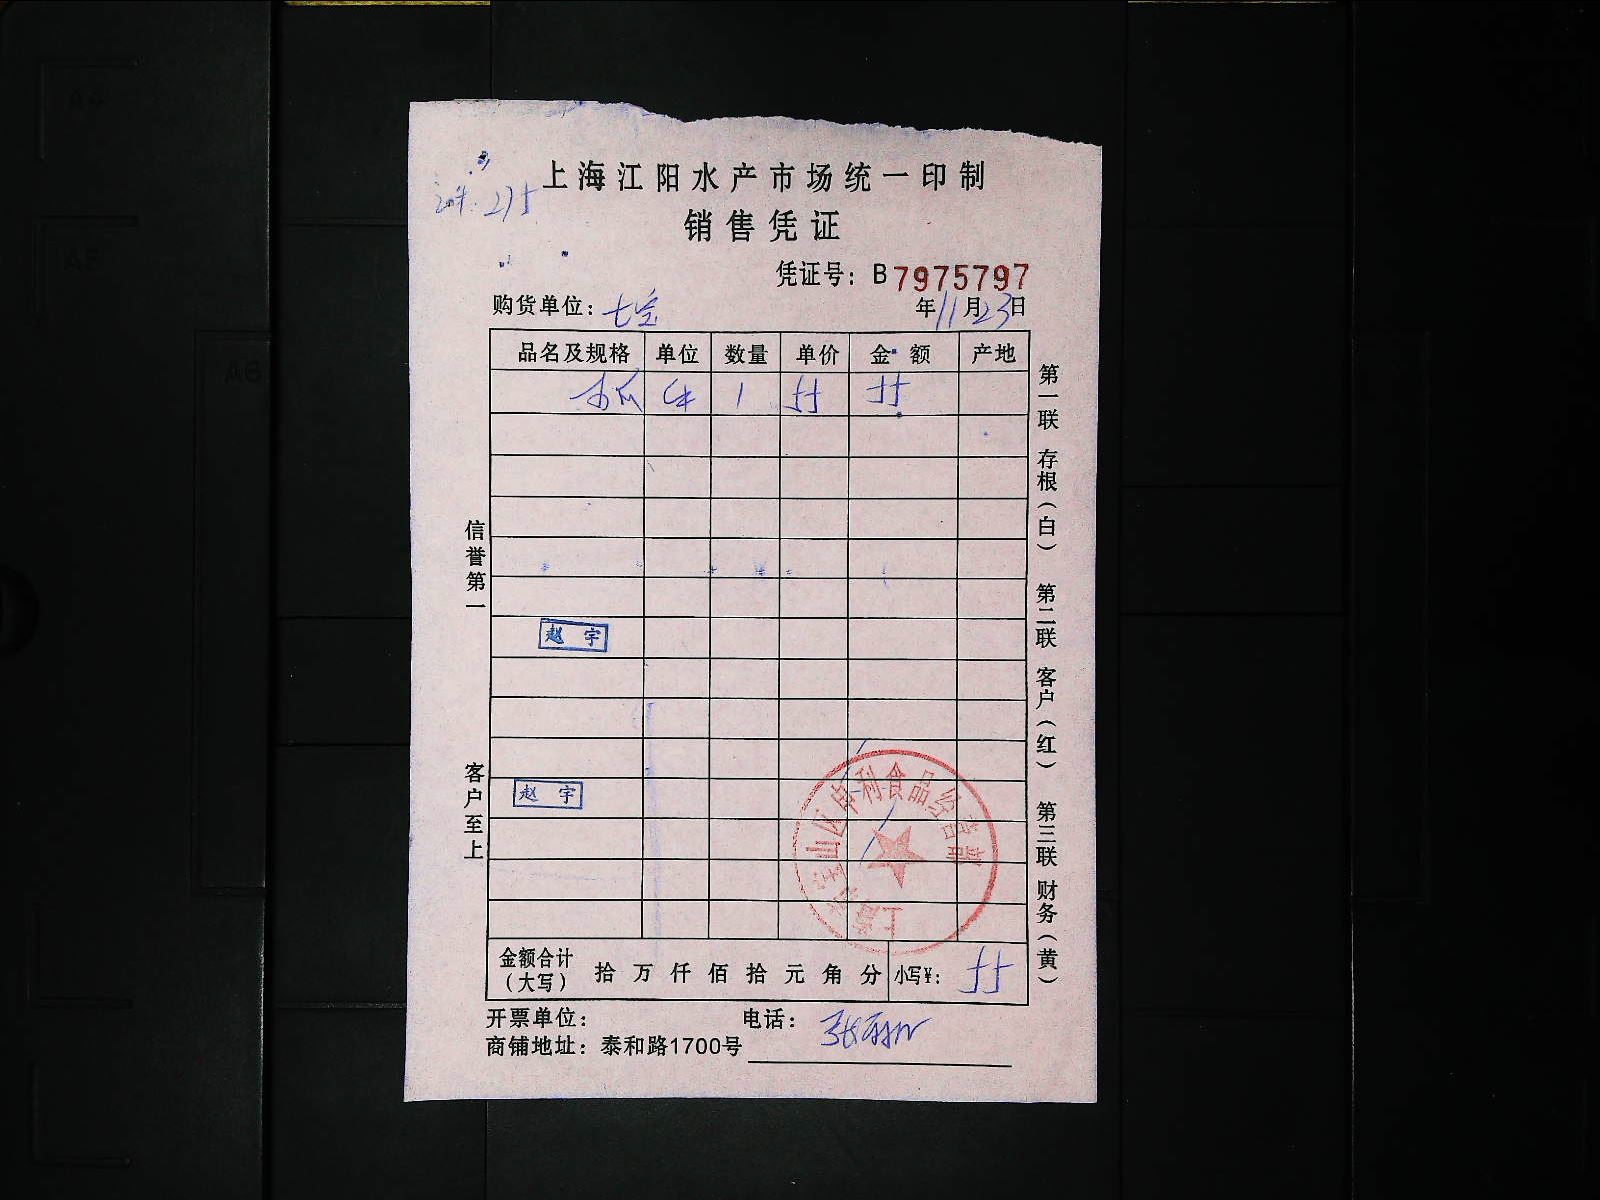 上海江阳水产市场统一印制
销售凭证
凭证号：B7975797
购货单位：七宝 年11月23日
品名及规格 单位 数量 单价 金额 产地
木瓜 件 1 55 55
赵宇
赵宇
金额合计（大写） 拾万仟佰拾元角分 小写¥：55
开票单位： 电话：
商铺地址：泰和路1700号
信誉第一
客户至上
第一联 存根（白） 第二联 客户（红） 第三联 财务（黄）
上海市宝山区申利食品经营部